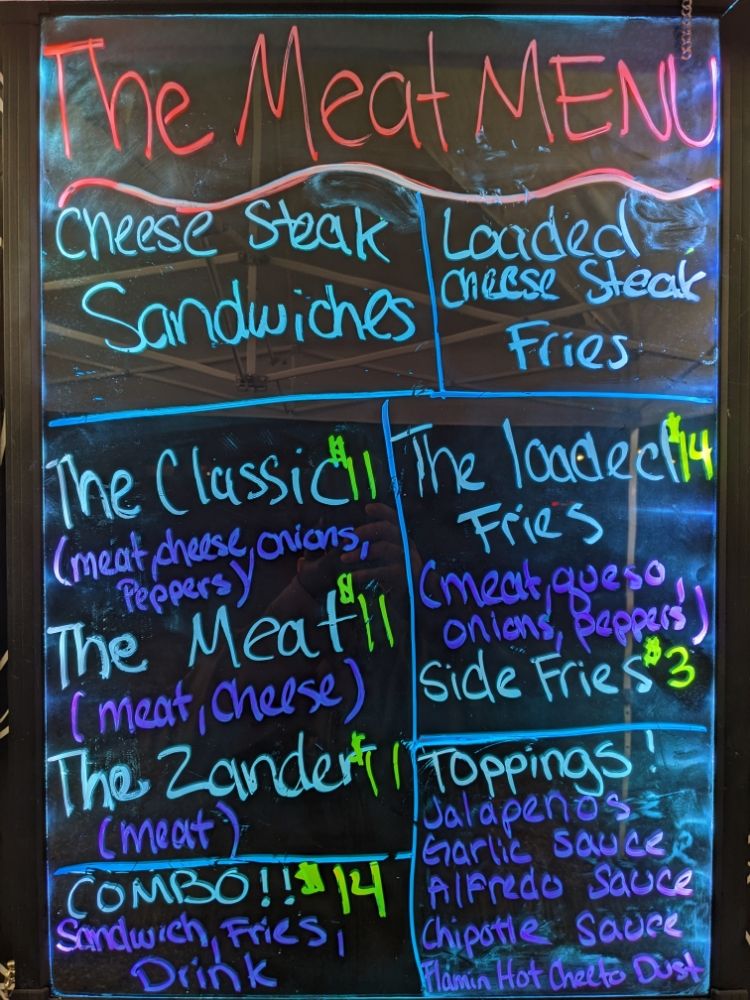 The Meat MENU
Cheese Steak
Sandwiches
Loaded
Cheese Steak
Fries
The Classic $11
(meat, cheese, onions,
Peppers)
The Meat $11
(meat, cheese)
The Zander $11
(meat)
COMBO!! $14
Sandwich, Fries,
Drink
The loaded $14
Fries
(meat, queso,
onions, peppers)
Side Fries $3
Toppings!
Jalapenos
Garlic Sauce
Alfredo Sauce
Chipotle Sauce
Flamin Hot Cheeto Dust